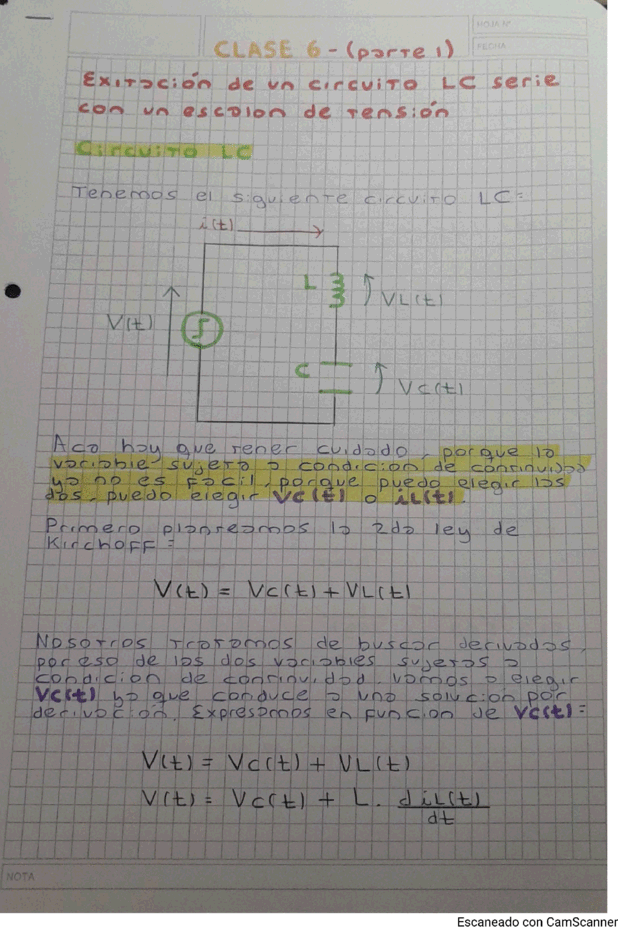 HOJA Nº
FECHA
CLASE 6 - (parte 1)
Exitación de un circuito LC serie
con un escalon de tensión
Circuito LC
Tenemos el siguiente circuito LC=
i(t)
L
VL(t)
V(t)
C
Vc(t)
Aca hay que tener cuidado, porque la
variable sujeta a condicion de continuidad
ya no es facil, porque puedo elegir las
dos, puedo elegir Vc(t) o iL(t).
Primero planteamos la 2da ley de
Kirchoff=
V(t) = Vc(t) + VL(t)
Nosotros tratamos de buscar derivadas,
por eso de las dos variables sujetas a
condición de continuidad, vamos a elegir
Vc(t) ya que conduce a una solución por
derivación. Expresamos en función de Vc(t)=
V(t) = Vc(t) + VL(t)
V(t) = Vc(t) + L. diL(t)
dt
NOTA
Escaneado con CamScanner